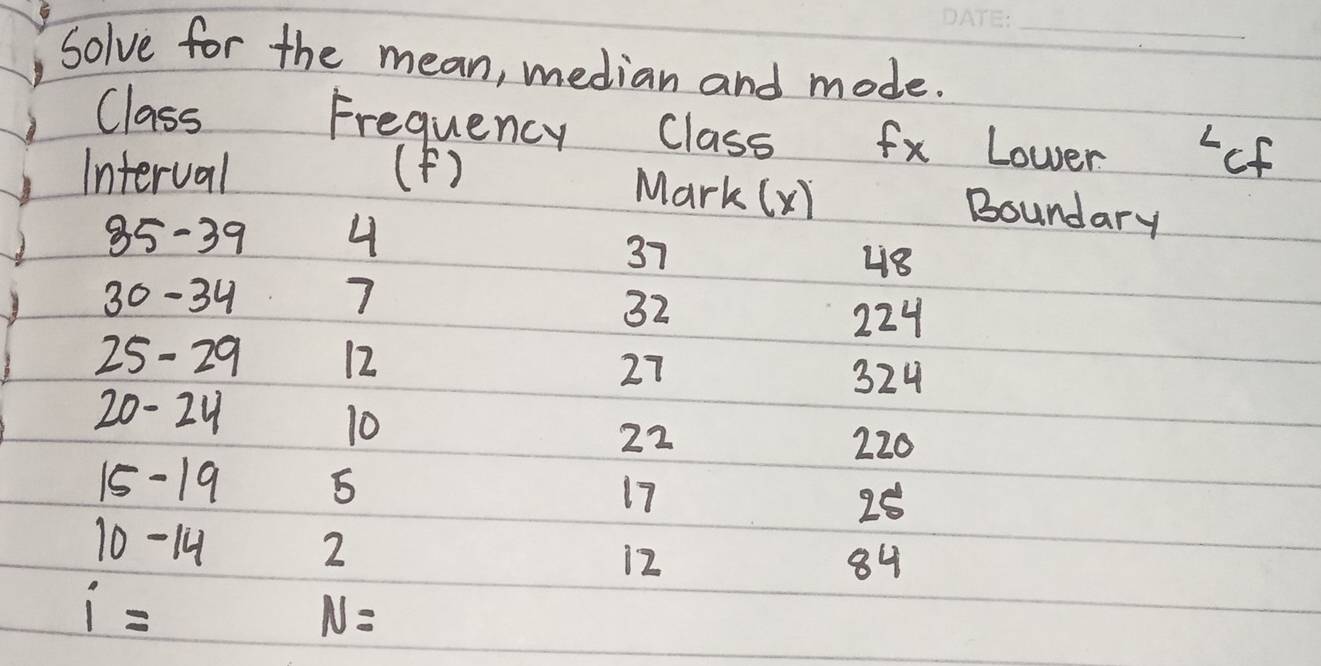 DATE:
Solve for the mean, median and mode.
Class Frequency Class fx Lower <cf
Interval (f) Mark (x) Boundary
35-39 4 37 48
30-34 7 32 224
25-29 12 27 324
20-24 10 22 220
15-19 5 17 25
10-14 2 12 84
i = N=